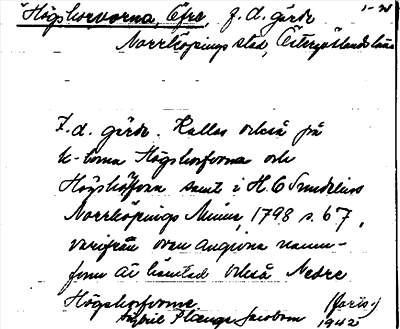 Högskorvorna, Öfre, f. d. gärde
Norrköpings stad, Östergötlands län
F. d. gärde. Kallas också på
k-borna Högskorforna och
Högsköfvorna samt i H. O Sundelius
Norrköpings Minne, 1798 s. 67,
varifrån ovan angivna namn-
form är hämtad också Nedre
Högskorforna
Jacobson 1942